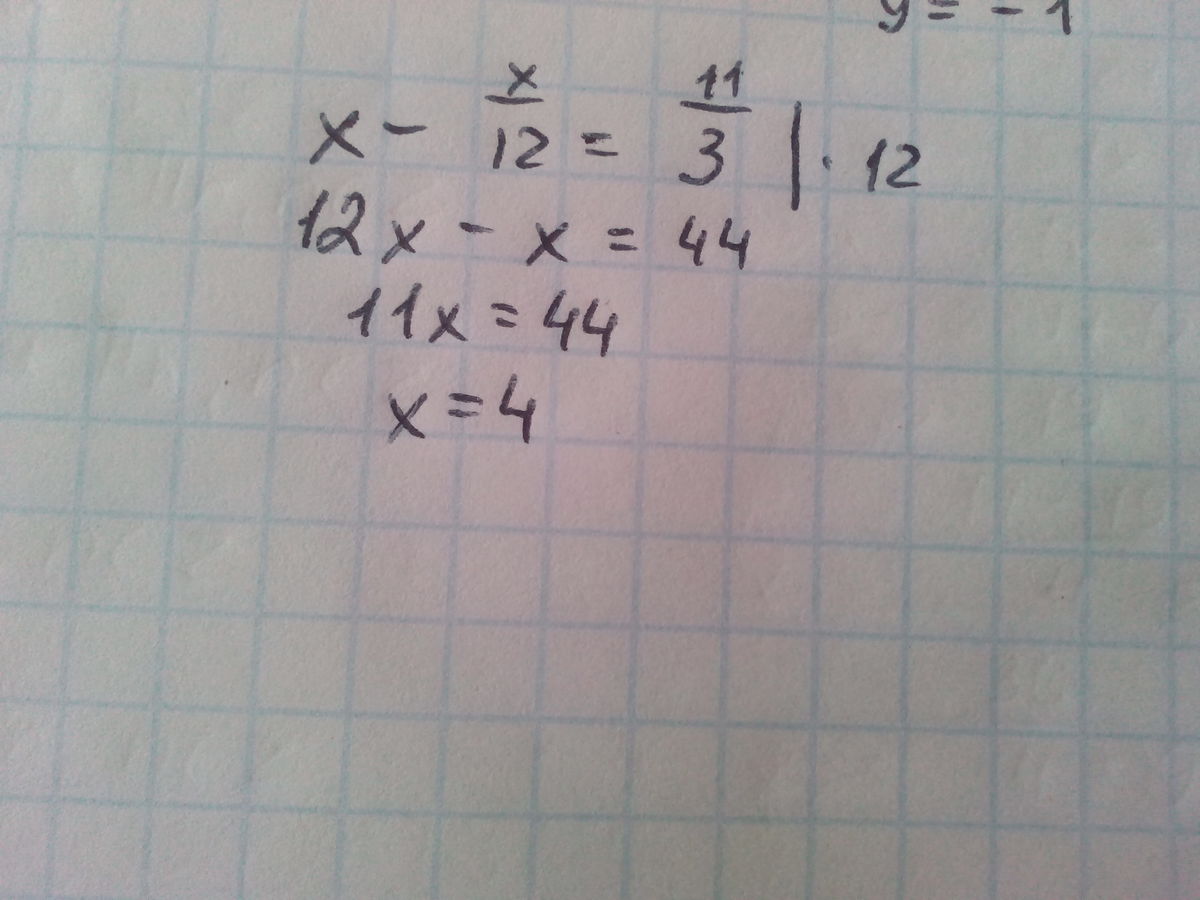 y = - 1
x - x/12 = 11/3 | · 12
12x - x = 44
11x = 44
x = 4